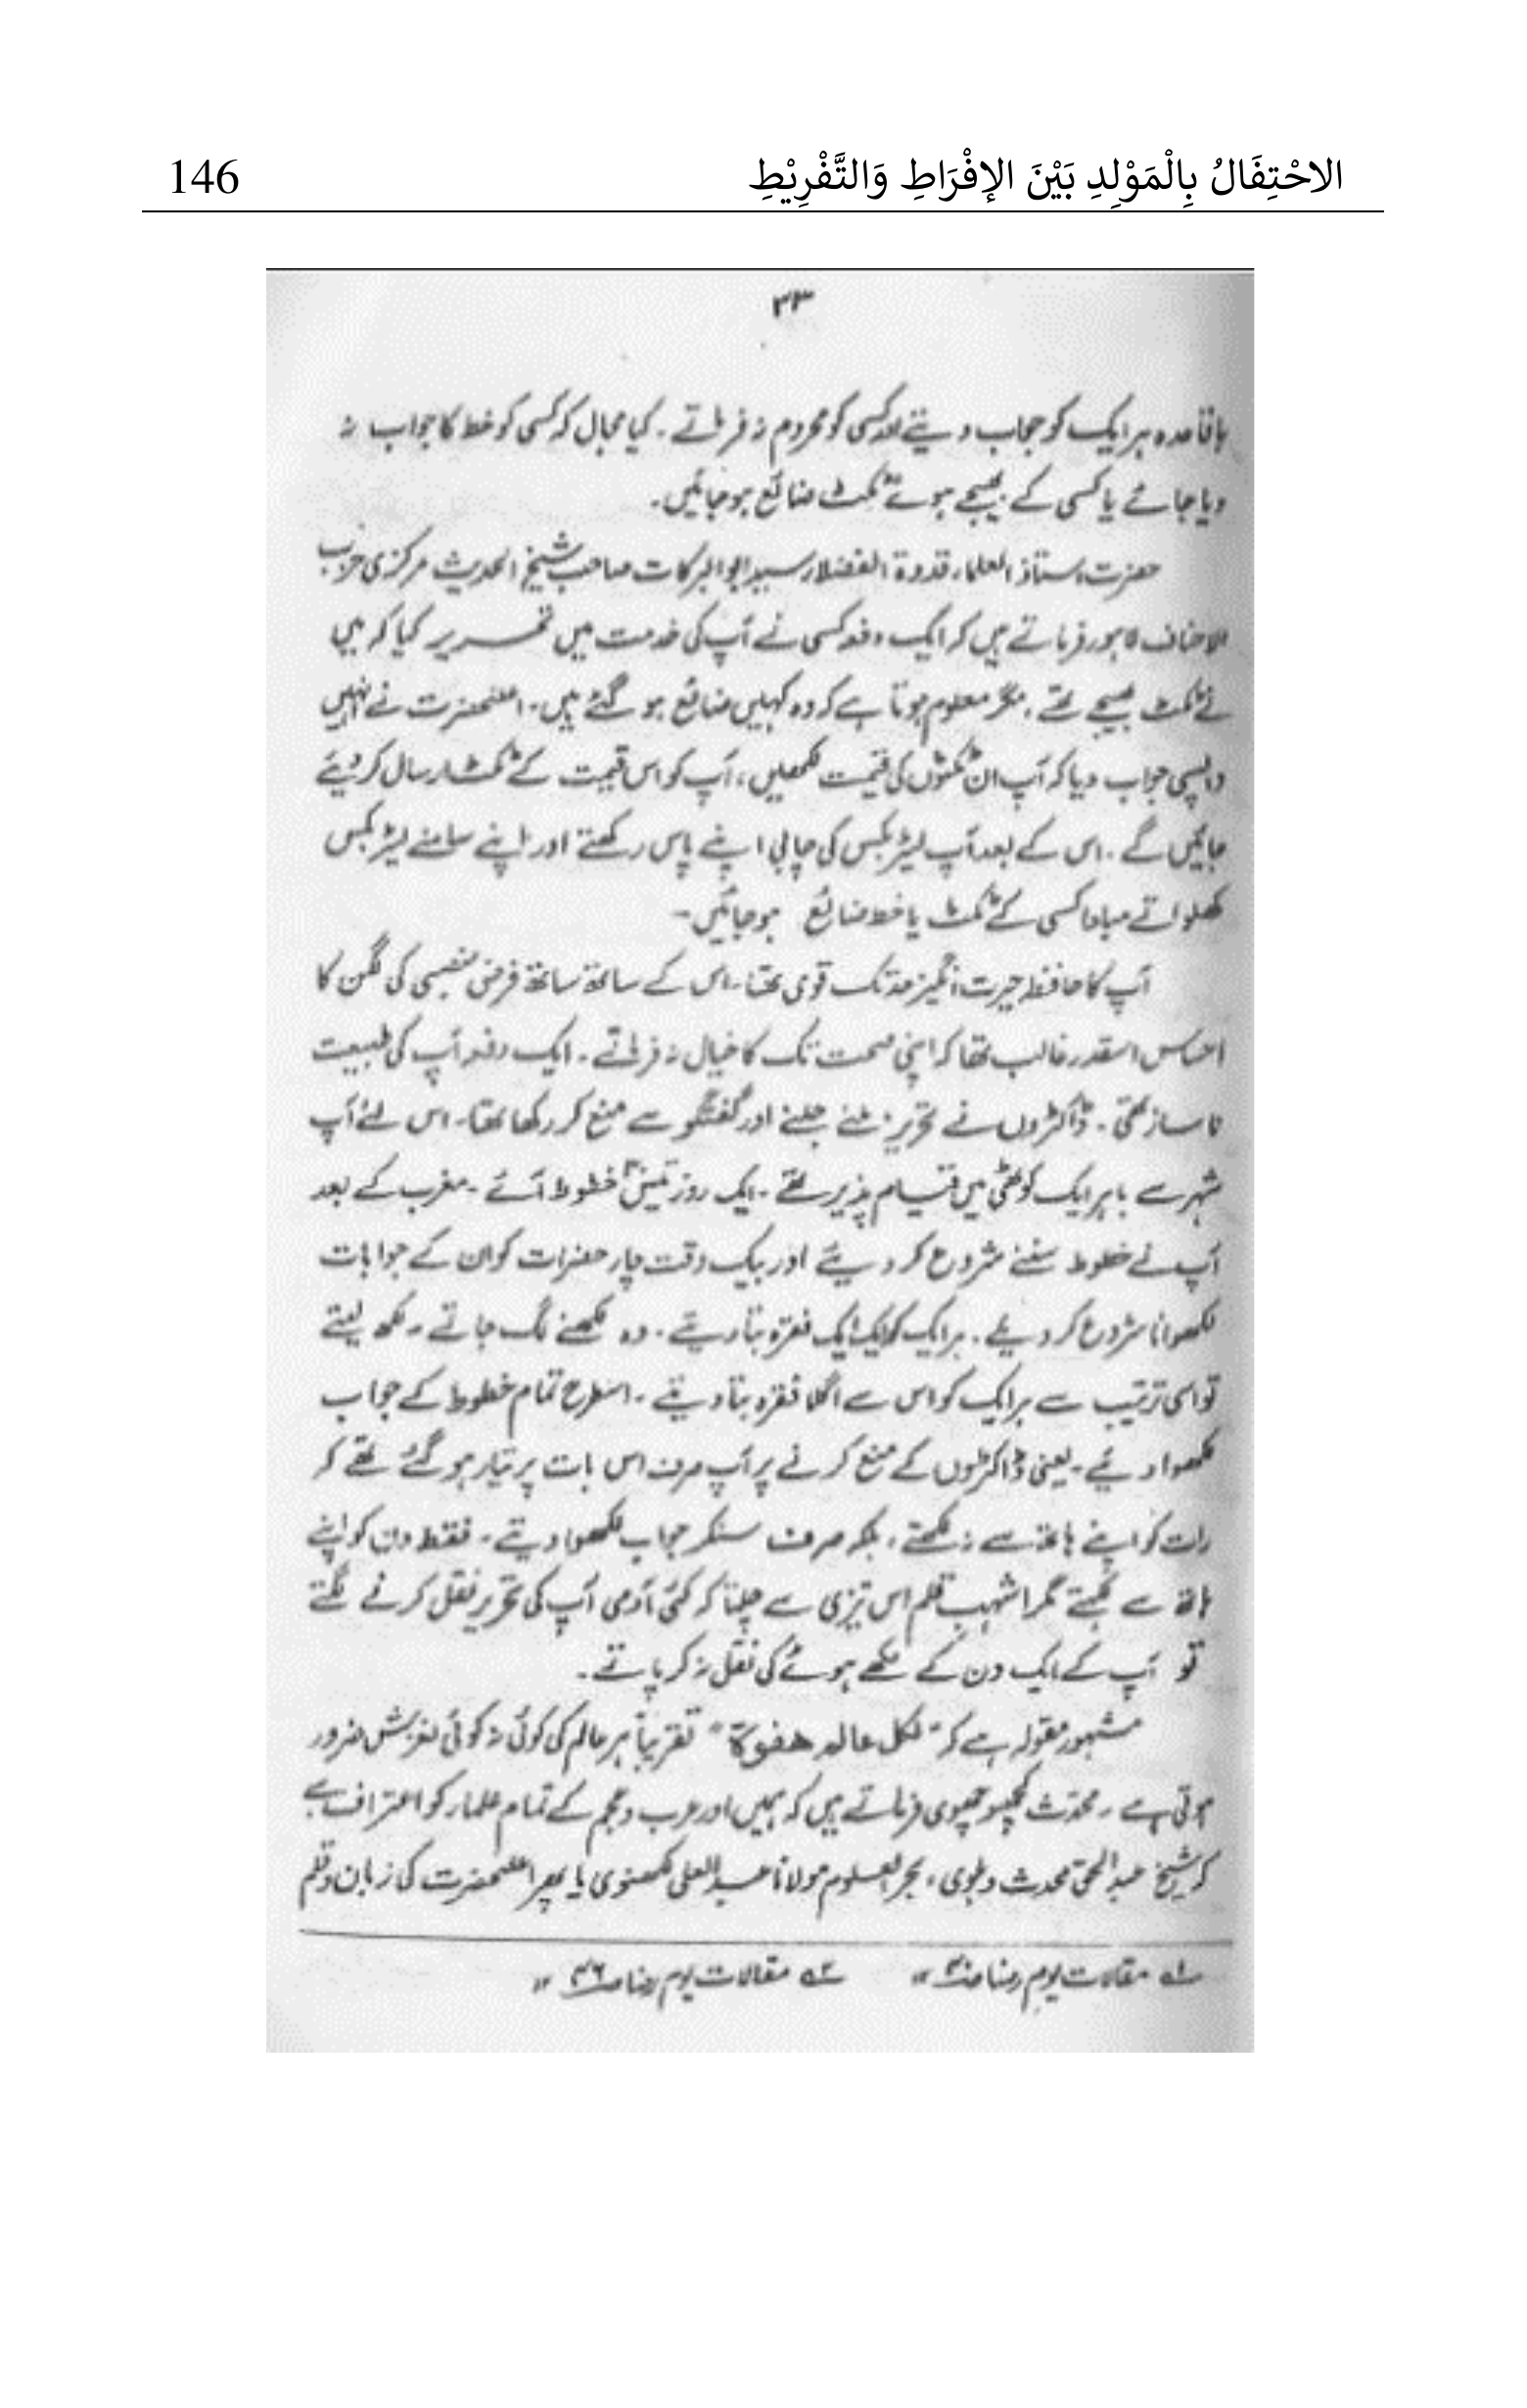 الاحْتِفَالُ بِالْمَوْلِدِ بَيْنَ الإفْرَاطِ وَالتَّفْرِيْطِ 146
۳۳
باقاعدہ ہر ایک کو جواب دیتے اور کسی کو محروم نہ فرماتے ۔ کیا مجال کہ کسی کو خط کا جواب نہ
دیا جائے یا کسی کے بھیجے ہوئے ٹکٹ ضائع ہو جائیں۔
حضرت استاذ العلماء قدوۃ الفضلاء سید ابوالبرکات صاحب شیخ الحدیث مرکزی حزب
الاحناف لاہور فرماتے ہیں کہ ایک دفعہ کسی نے آپ کی خدمت میں تحریر کیا کہ میں
نے ٹکٹ بھیجے تھے ، مگر معلوم ہوتا ہے کہ وہ کہیں ضائع ہو گئے ہیں۔ اعلحضرت نے انہیں
واپسی جواب دیا کہ آپ ان ٹکٹوں کی قیمت لکھیں ، آپ کو اس قیمت کے ٹکٹ ارسال کر دیئے
جائیں گے ۔ اس کے بعد آپ لیٹر بکس کی چابی اپنے پاس رکھتے اور اپنے سامنے لیٹر بکس
کھلواتے مبادا کسی کے ٹکٹ یا خط ضائع ہو جائیں۔
آپ کا حافظہ حیرت انگیز حد تک قوی تھا۔ اس کے ساتھ ساتھ فرض منصبی کی لگن کا
احساس اسقدر غالب تھا کہ اپنی صحت تک کا خیال نہ فرماتے ۔ ایک دفعہ آپ کی طبیعت
ناساز تھی ۔ ڈاکٹروں نے تحریر ، ملنے جلنے اور گفتگو سے منع کر رکھا تھا۔ اس لئے آپ
شہر سے باہر ایک کوٹھی میں قیام پذیر تھے ۔ ایک روز تیس خطوط آئے ۔ مغرب کے بعد
آپ نے خطوط سننے شروع کر دیئے اور بیک وقت چار حضرات کو ان کے جوابات
لکھوانا شروع کر دیئے ۔ ہر ایک کو ایک ایک فقرہ بتا دیتے ۔ وہ لکھنے لگ جاتے ۔ لکھ لیتے
تو اسی ترتیب سے ہر ایک کو اس سے اگلا فقرہ بتا دیتے ۔ اسطرح تمام خطوط کے جواب
لکھوا دیئے ۔ یعنی ڈاکٹروں کے منع کرنے پر آپ صرف اس بات پر تیار ہو گئے تھے کہ
رات کو اپنے ہاتھ سے نہ لکھتے ، بلکہ صرف سنکر جواب لکھوا دیتے ۔ فقط دن کو اپنے
ہاتھ سے لکھتے مگر اشہبِ قلم اس تیزی سے چلتا کہ کئی آدمی آپ کی تحریر نقل کرنے لگتے
تو آپ کے ایک دن کے لکھے ہوئے کی نقل نہ کر پاتے ۔
مشہور مقولہ ہے کہ " لکل عالم ھفوۃ " تقریباً ہر عالم کی کوئی نہ کوئی لغزش ضرور
ہوتی ہے ۔ محدث کچھوچھوی فرماتے ہیں کہ ہمیں اور عرب و عجم کے تمام علماء کو اعتراف ہے
کہ شیخ عبدالحق محدث دہلوی ، بحر العلوم مولانا عبدالعلی لکھنوی یا پھر اعلحضرت کی زبان و قلم
۱ مقالات یوم رضا ۲ مقالات یوم رضا